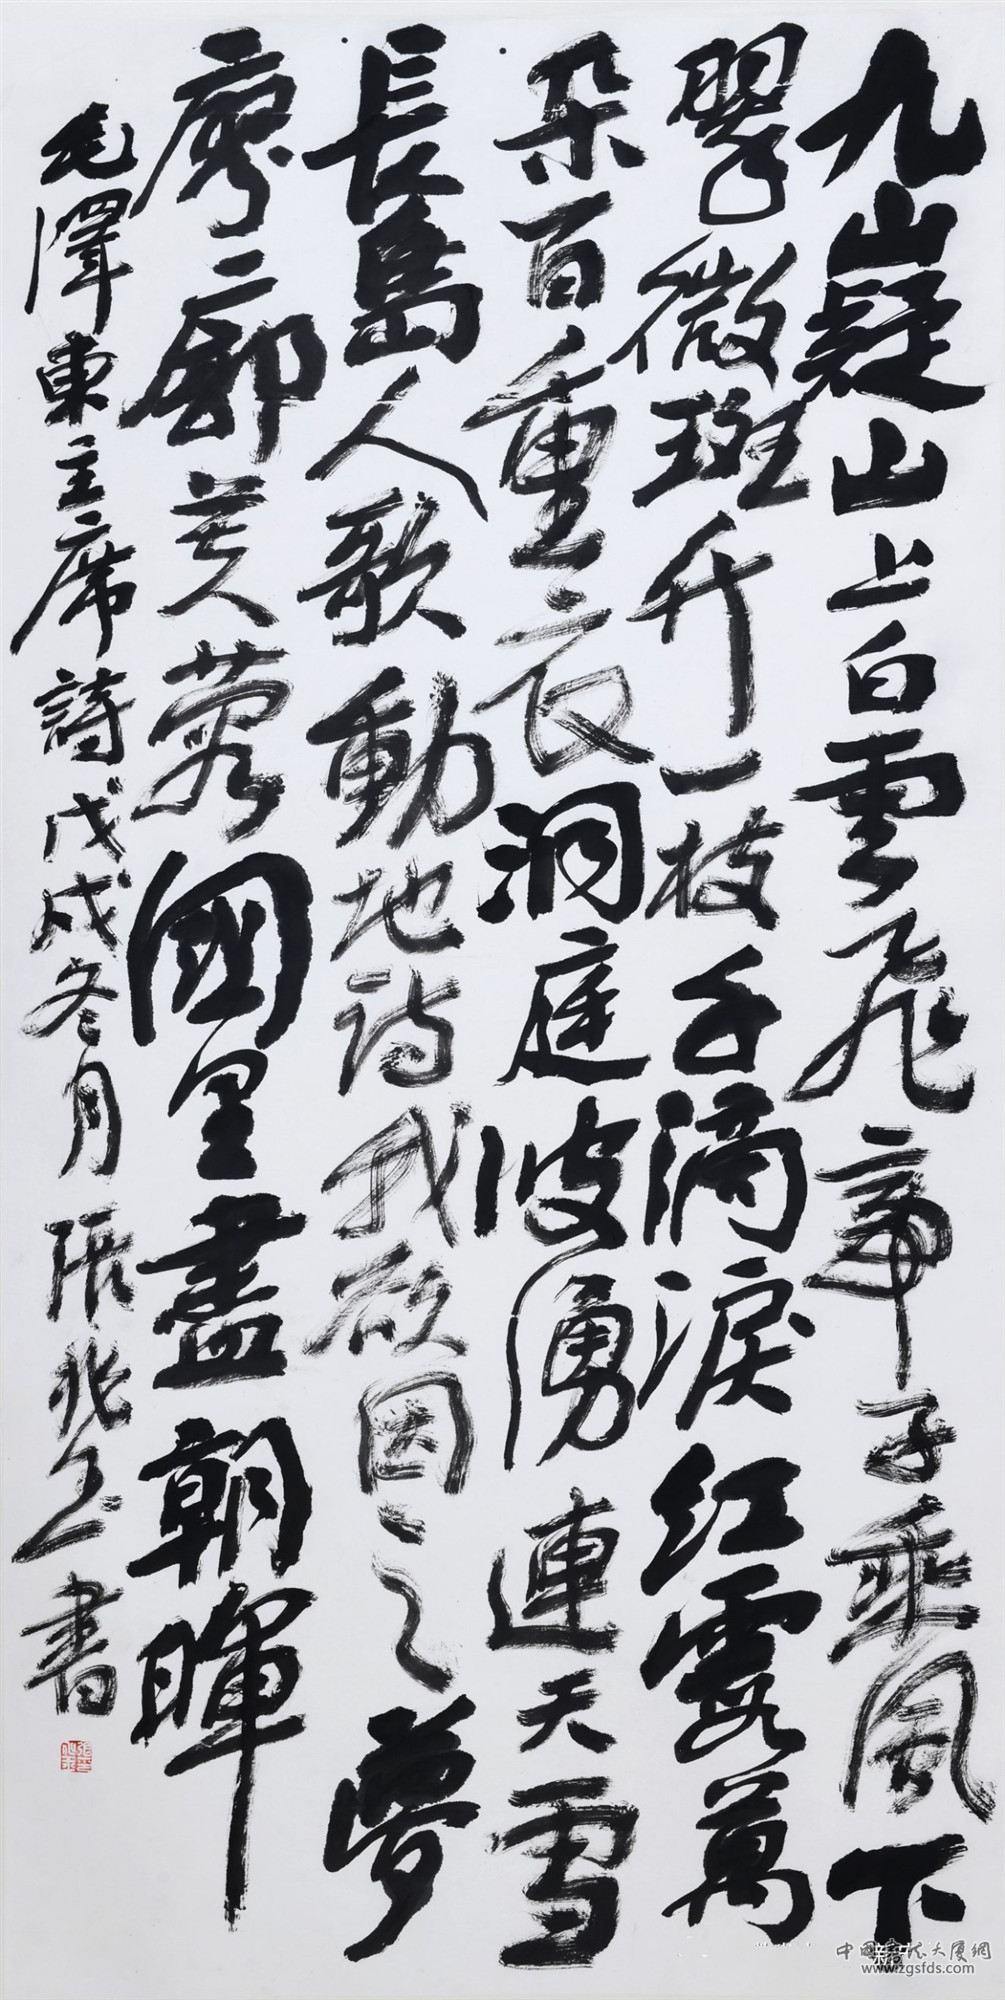 九嶷山上白雲飛帝子乘風下
翠微斑竹一枝千滴淚红霞萬
朵百重衣洞庭波湧連天雪
長島人歌動地诗我欲因之夢
寥廓芙蓉國里盡朝暉
毛澤東主席詩戊戌冬月張兆玉書
www.zgsfds.com